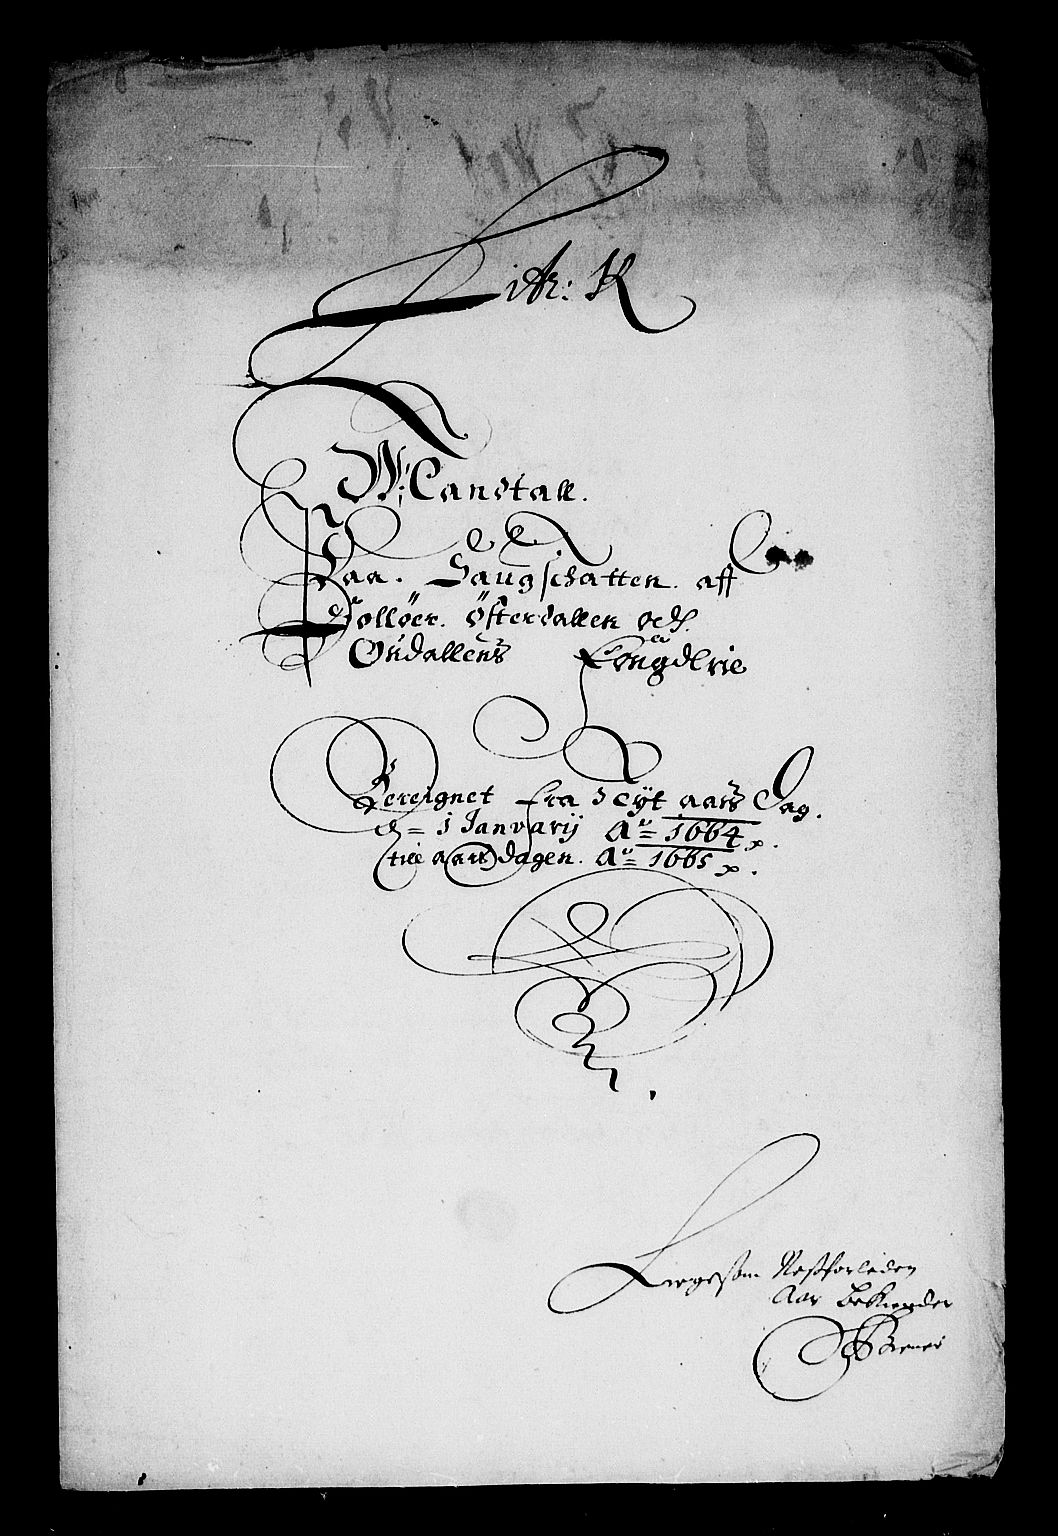 Litr: K
Mandtall.
Paa. Saugschatten. aff
Solløer. Østerdallen och
Oudallens Fougderie
Bereignet fra Nyt aars Dag.
d= 1 Januarij A°= 1664
till aars dagen. A°= 1665
Ligesom Nestforleden
Aar Bekiender